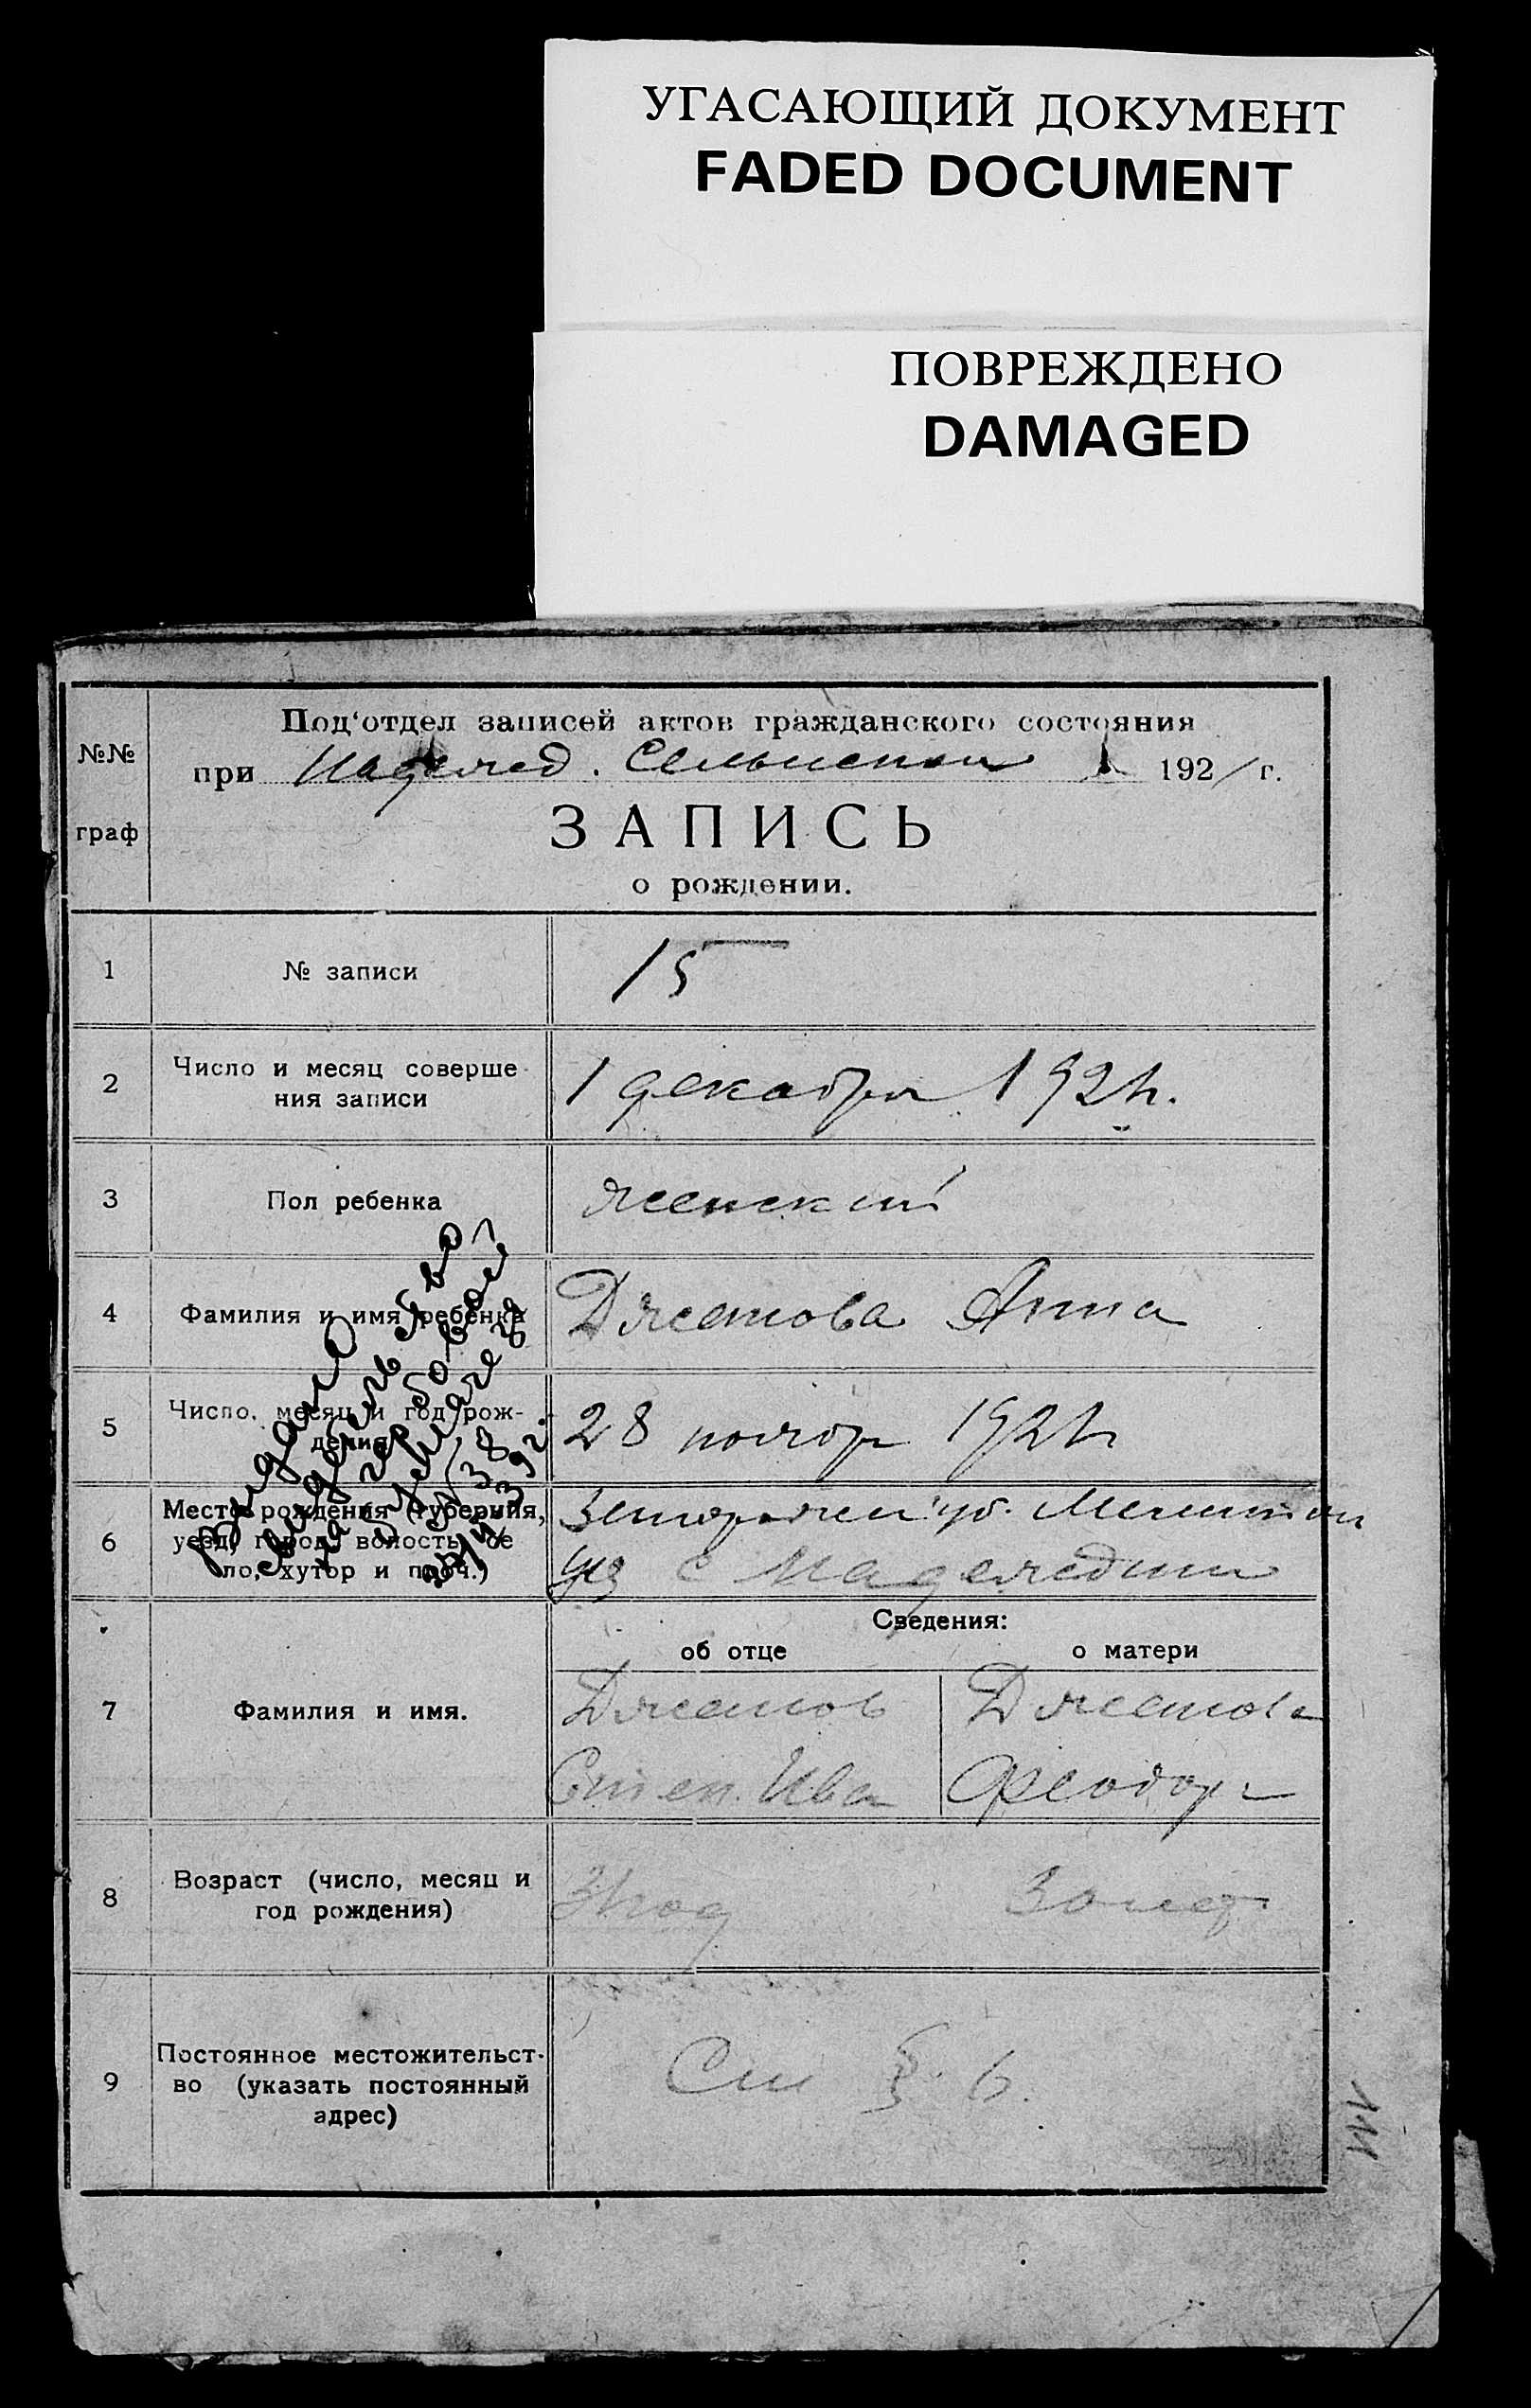 УГАСАЮЩИЙ ДОКУМЕНТ
FADED DOCUMENT
ПОВРЕЖДЕНО
DAMAGED
№№
граф
Под'отдел записей актов гражданского состояния
при 192/ г.
ЗАПИСЬ
о рождении.
1 № записи 15
2 Число и месяц соверше-
ния записи 1 декабря 1921г.
3 Пол ребенка женский
4 Фамилия и имя ребенка Джетова Анна
5 Число, месяц и год рож-
дения 28 ноябр 1921г
6 Место рождения (губерния,
уезд, город, волость, се
ло, хутор и проч.)
Запорожск губ. Мелитоп
уез с
Сведения:
об отце о матери
7 Фамилия и имя. Джетов Джетова
Степ. Ива Феодора
8 Возраст (число, месяц и
год рождения) 31 год 30 лет
9 Постоянное местожительст-
во (указать постоянный
адрес)
См § 6.
111